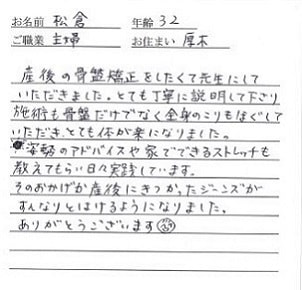 お名前 松倉 年齢 32
ご職業 主婦 お住まい 厚木
産後の骨盤矯正をしたくて先生にして
いただきました。とても丁寧に説明して下さり
施術も骨盤だけでなく全身のこりもほぐして
いただき、とても体が楽になりました。
姿勢のアドバイスや家でできるストレッチも
教えてもらい日々実践しています。
そのおかげか産後にきつかったジーンズが
すんなりとはけるようになりました。
ありがとうございます